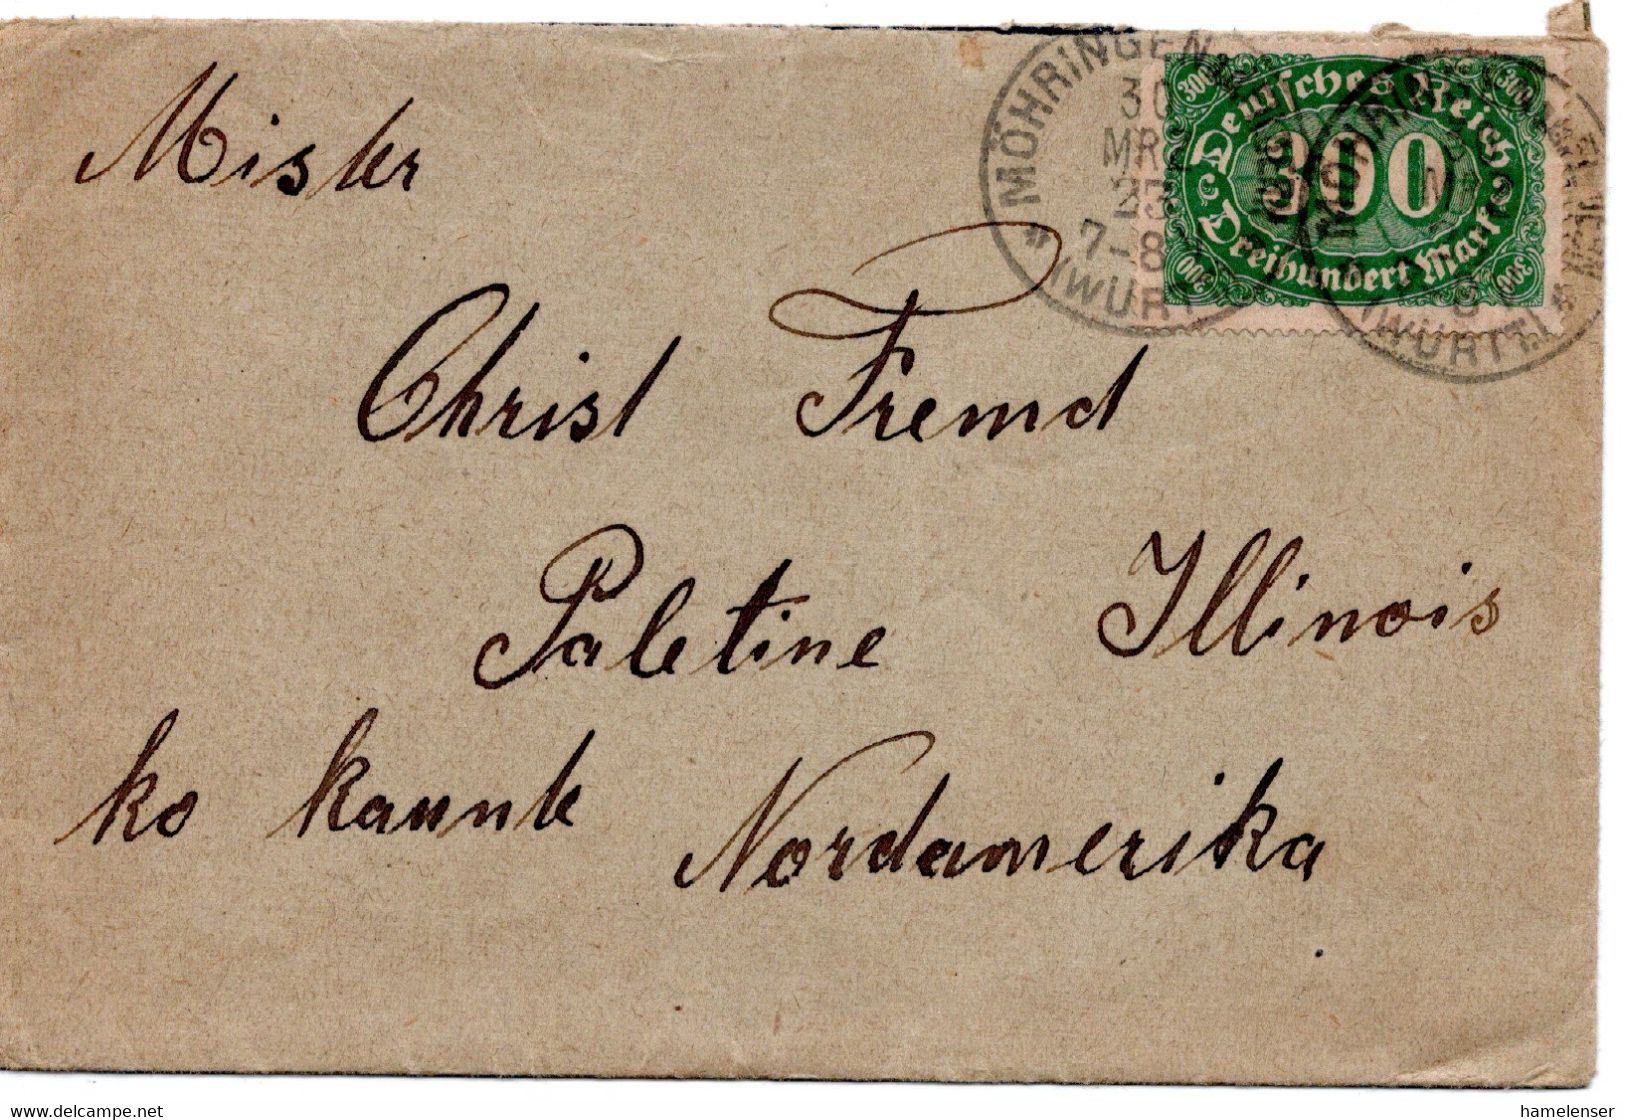 MÖHRINGEN
30
MRZ
23
7-8
(WÜRTT)
300 300
Deutsches Reich
300
Dreihundert Mark
300 300
Mister
Christ Fremd
Paletine Illinois
ko kaunte Nordamerika
www.delcampe.net
hamelenser